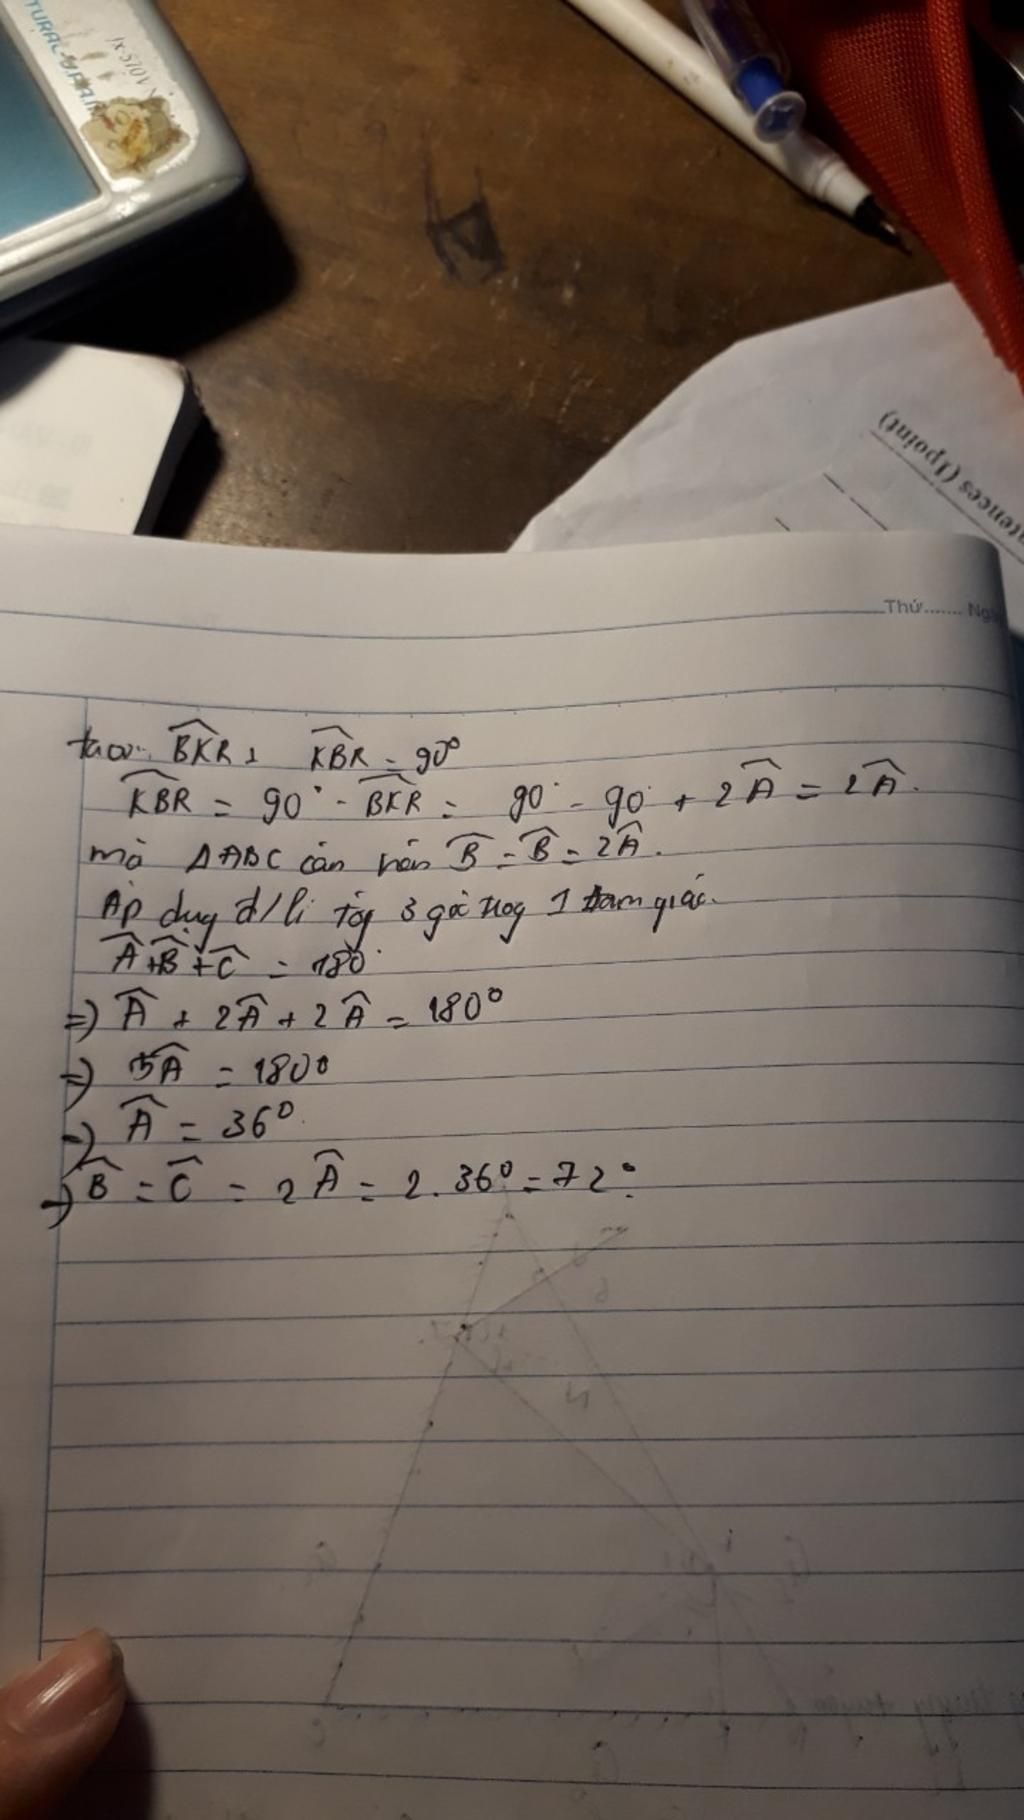 fx-570V
tences (1point)
Thứ....... Ngà
ta có: BKR + KBR = 90°
KBR = 90° - BKR = 90° - 90° + 2A = 2A.
mà ΔABC cân nên B = B = 2A.
Áp dụng đ/lí tổg 3 góc trog 1 tam giác.
A + B + C = 180°
=> A + 2A + 2A = 180°
=> 5A = 180°
=> A = 36°.
=> B = C = 2A = 2. 36° = 72°.